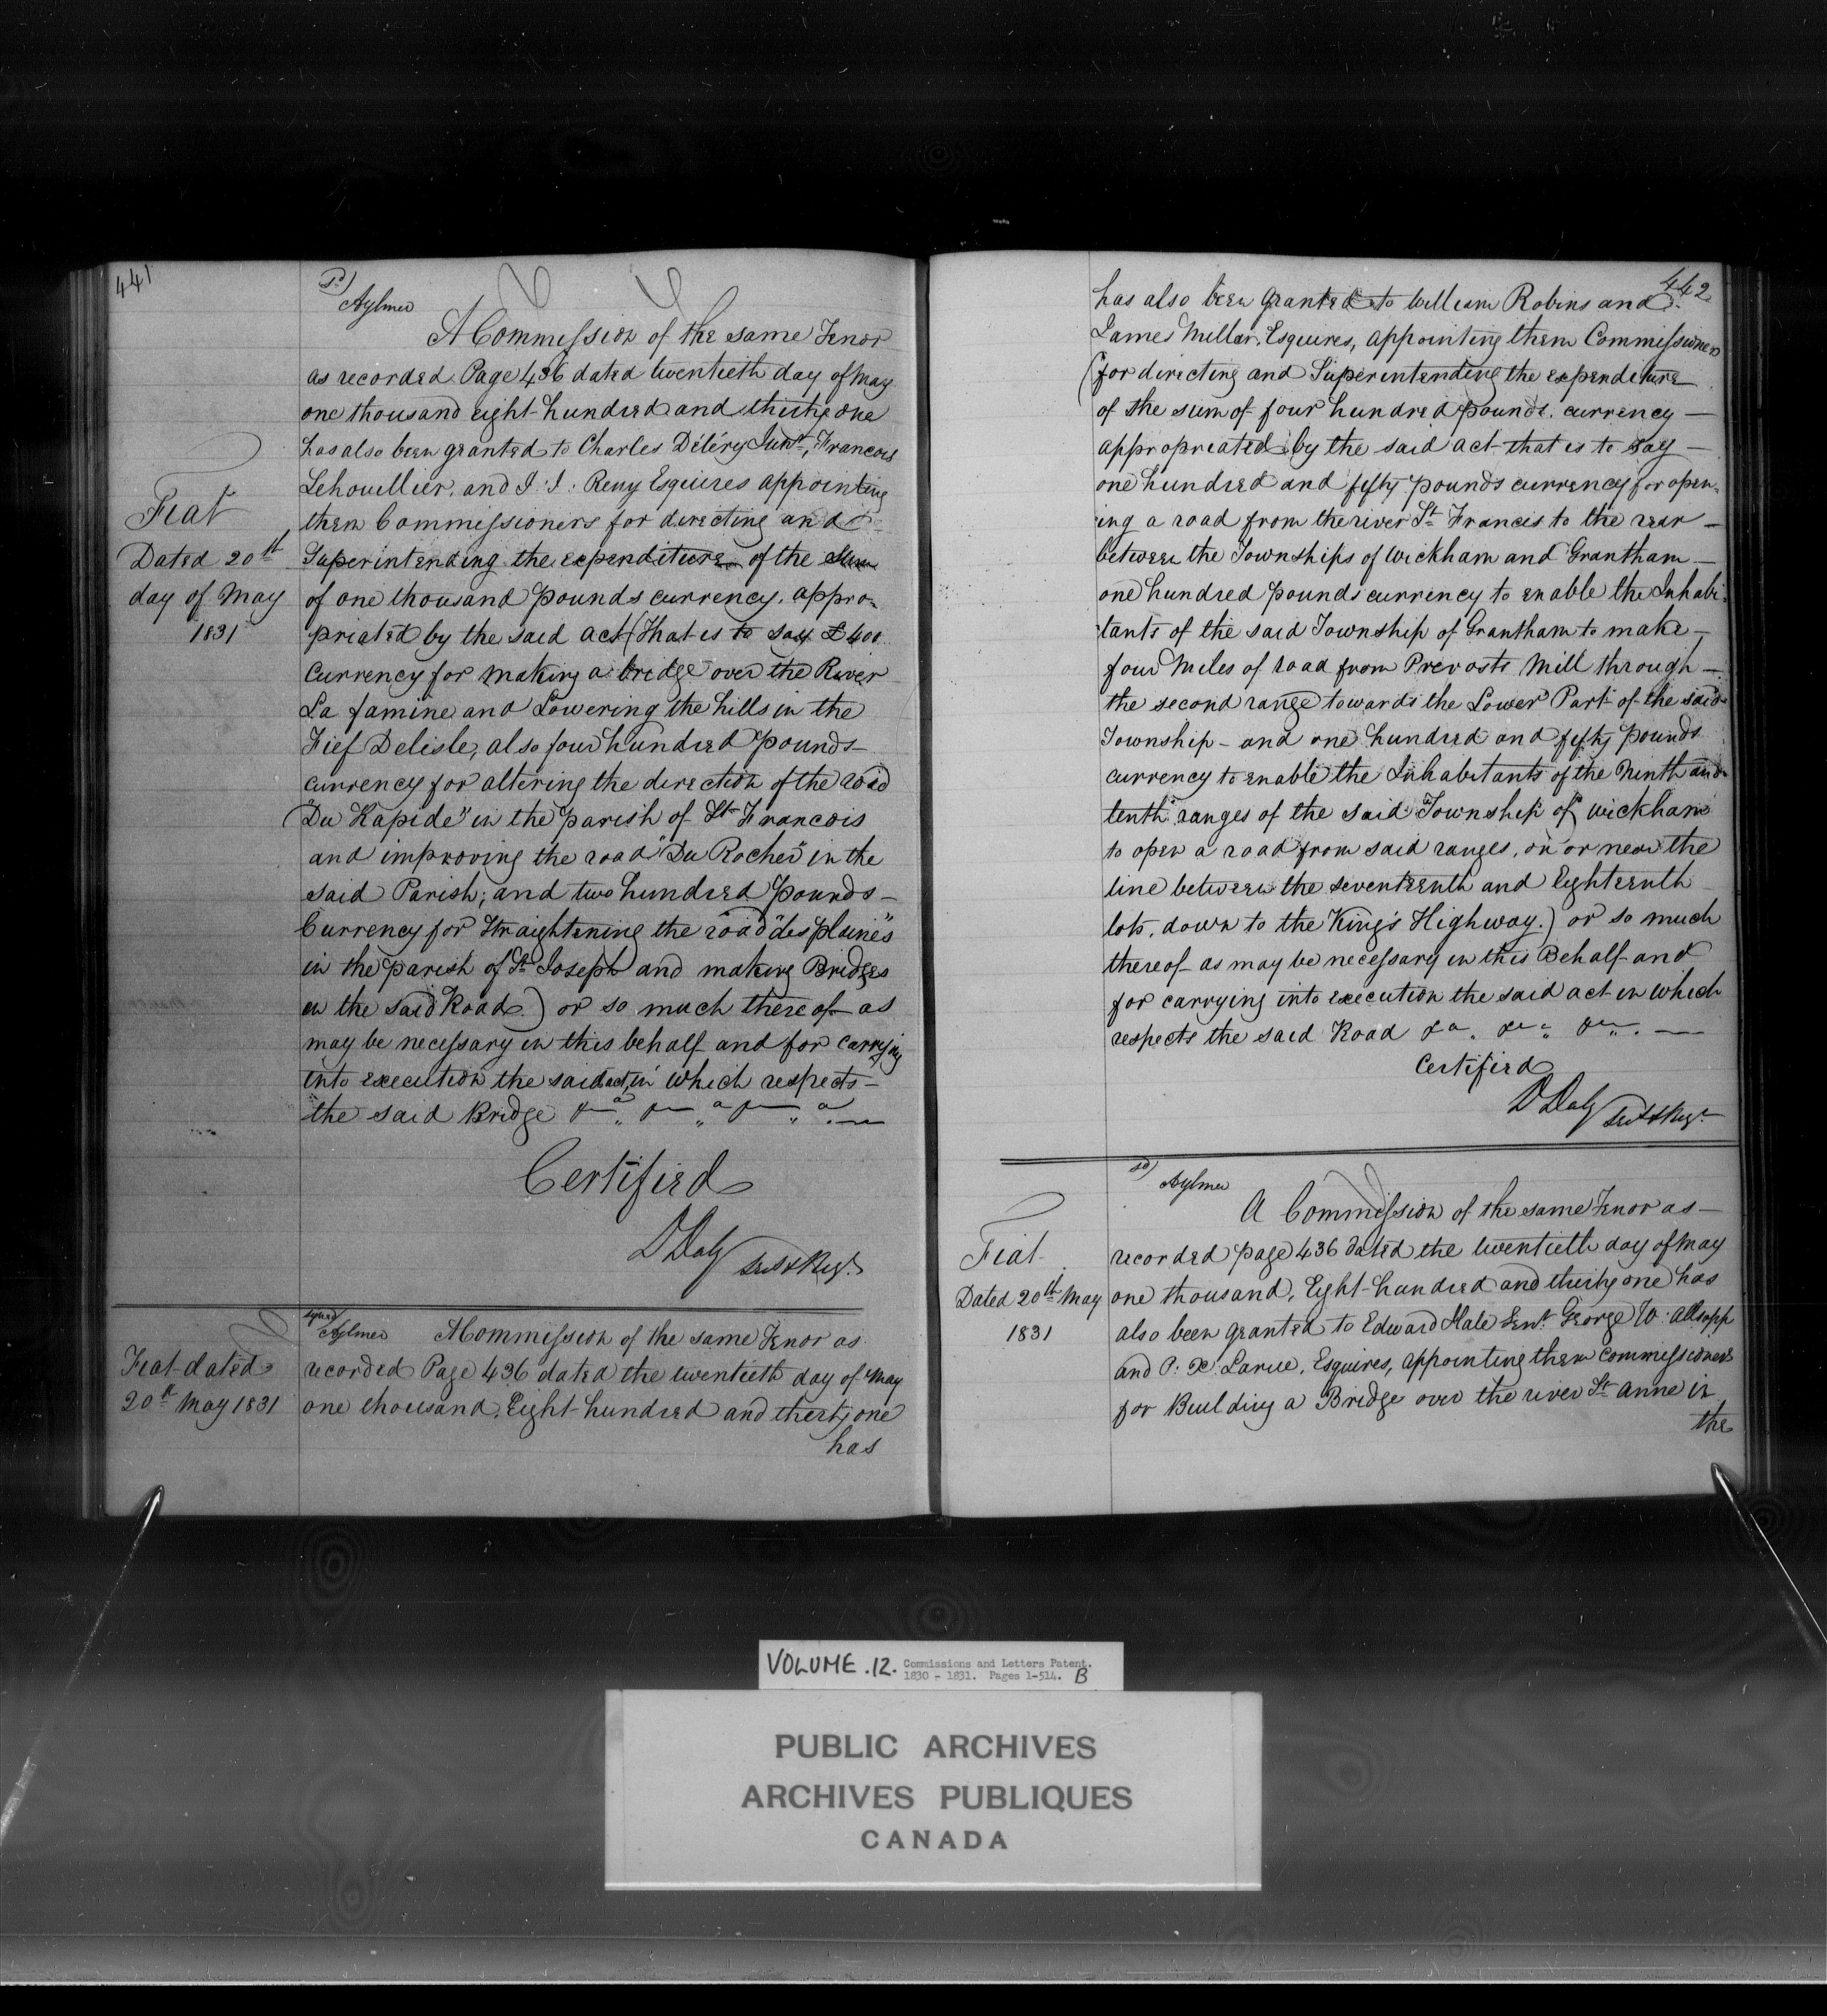 441
Sd)
Aylmer
A Commission of the same Tenor
as recorded Page 436 dated twentieth day of May
one thousand eight hundred and thirty one
has also been granted to Charles Déléry Junr, Francois
Lehouillier, and J. J. Reny Esquires appointing
them Commissioners for directing and
Superintending the expenditure of the Sum
of one thousand pounds currency, appro-
priated by the said act (that is to say £400
Currency for making a bridge over the River
La famine and Lowering the hills in the
Fief Delisle, also four hundred pounds
currency for altering the direction of the road
"Du Rapide" in the parish of St Francois
and improving the road "Du Rocher" in the
said Parish; and two hundred pounds
Currency for Straightening the road "des plaines"
in the parish of St Joseph and making Bridges
in the said Road.) or so much thereof as
may be necessary in this behalf and for carrying
into execution the said act, in which respects
the said Bridge &a. &a. &a.
Certified
D Daly Secy & Regr.
Fiat
Dated 20th
day of May
1831
signed
Aylmer A Commission of the same Tenor as
recorded Page 436 dated the twentieth day of May
one thousand, Eight hundred and thirty one
has
Fiat dated
20th May 1831
442
has also been granted to William Robins and
James Millar, Esquires, appointing them Commissioners
(for directing and Superintending the expenditure
of the sum of four hundred pounds currency
appropriated by the said act that is to say
one hundred and fifty pounds currency for open-
ing a road from the river St Francis to the rear
between the Townships of Wickham and Grantham
one hundred pounds currency to enable the Inhabi-
tants of the said Township of Grantham to make
four Miles of road from Prevosts Mill through
the second range towards the Lower Part of the said
Township - and one hundred and fifty pounds
currency to enable the Inhabitants of the Ninth and
tenth ranges of the said Township of Wickham
to open a road from said ranges, on or near the
line between the seventeenth and Eighteenth
lots, down to the King's Highway.) or so much
thereof as may be necessary in this Behalf and
for carrying into execution the said act in which
respects the said Road &a. &a. &a.
Certified
D Daly Secy & Regr.
Sd)
Aylmer
A Commission of the same Tenor as
recorded page 436 dated the twentieth day of May
one thousand, Eight hundred and thirty one has
also been granted to Edward Hale Senr. George W. Allsopp
and P. X. Larue, Esquires, appointing them commissioners
for Building a Bridge over the river St Anne in
the
Fiat
Dated 20th May
1831
VOLUME .12. Commissions and Letters Patent.
1830 - 1831. Pages 1-514. B
PUBLIC ARCHIVES
ARCHIVES PUBLIQUES
CANADA